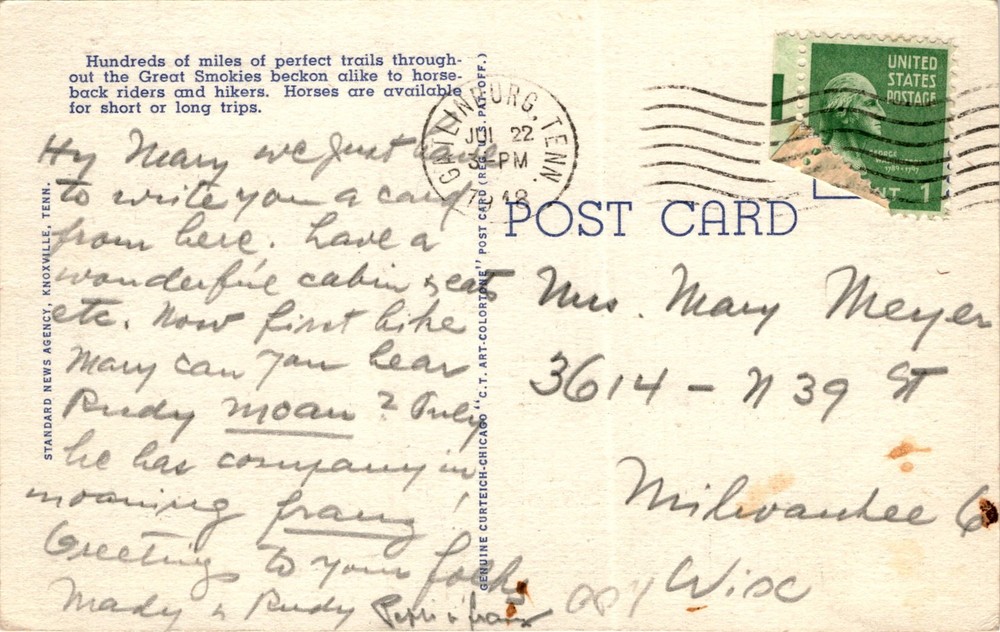 Hundreds of miles of perfect trails through-
out the Great Smokies beckon alike to horse-
back riders and hikers. Horses are available
for short or long trips.
Hy Mary we just have
to write you a card
from here. have a
wonderful cabin & eats
etc. Now first hike
Mary can you hear
Rudy moan? Only
he has company in
moaning franz!
Greetings to your folks
Mady & Rudy
STANDARD NEWS AGENCY, KNOXVILLE, TENN.
GENUINE CURTEICH-CHICAGO "C.T. ART-COLORTONE" POST CARD (REG. U.S. PAT. OFF.)
GATLINBURG, TENN.
JUL 22
3-PM
1948
UNITED
STATES
POSTAGE
GEORGE
1
POST CARD
Mrs. Mary Meyer
3614 - N 39 St
Milwaukee 6
Wisc